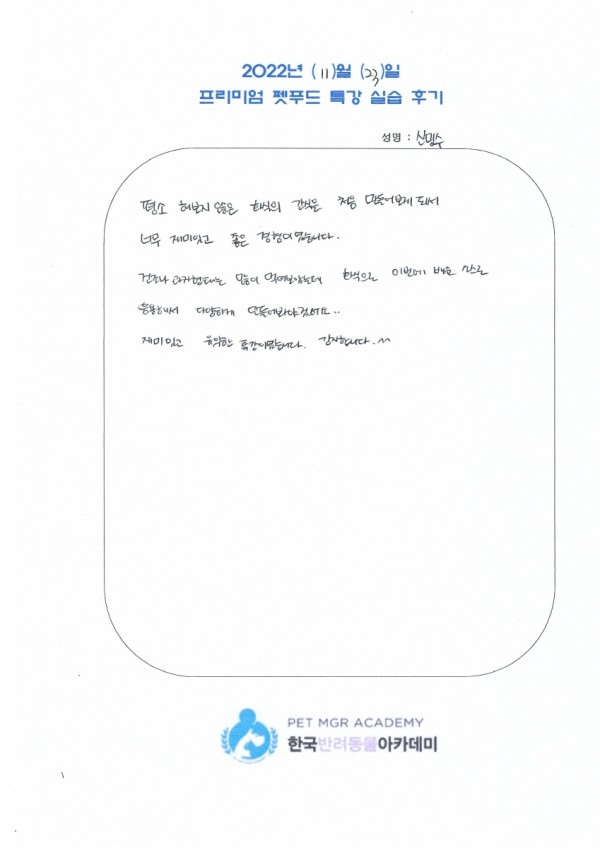 2022년 (11)월 (23)일
프리미엄 펫푸드 특강 실습 후기
성명 : 신민수
평소 해보지 않은 화식의 간식을 처음 만들어보게 되서
너무 재미있고 좋은 경험이였습니다.
건조나 과자형태는 많이 먹여보았는데 화식으로 이번에 배운
응용해서 다양하게 만들어봐야겠어요..
재미있고 유익한 특강이였습니다. 감사합니다.^^
PET MGR ACADEMY
한국반려동물아카데미